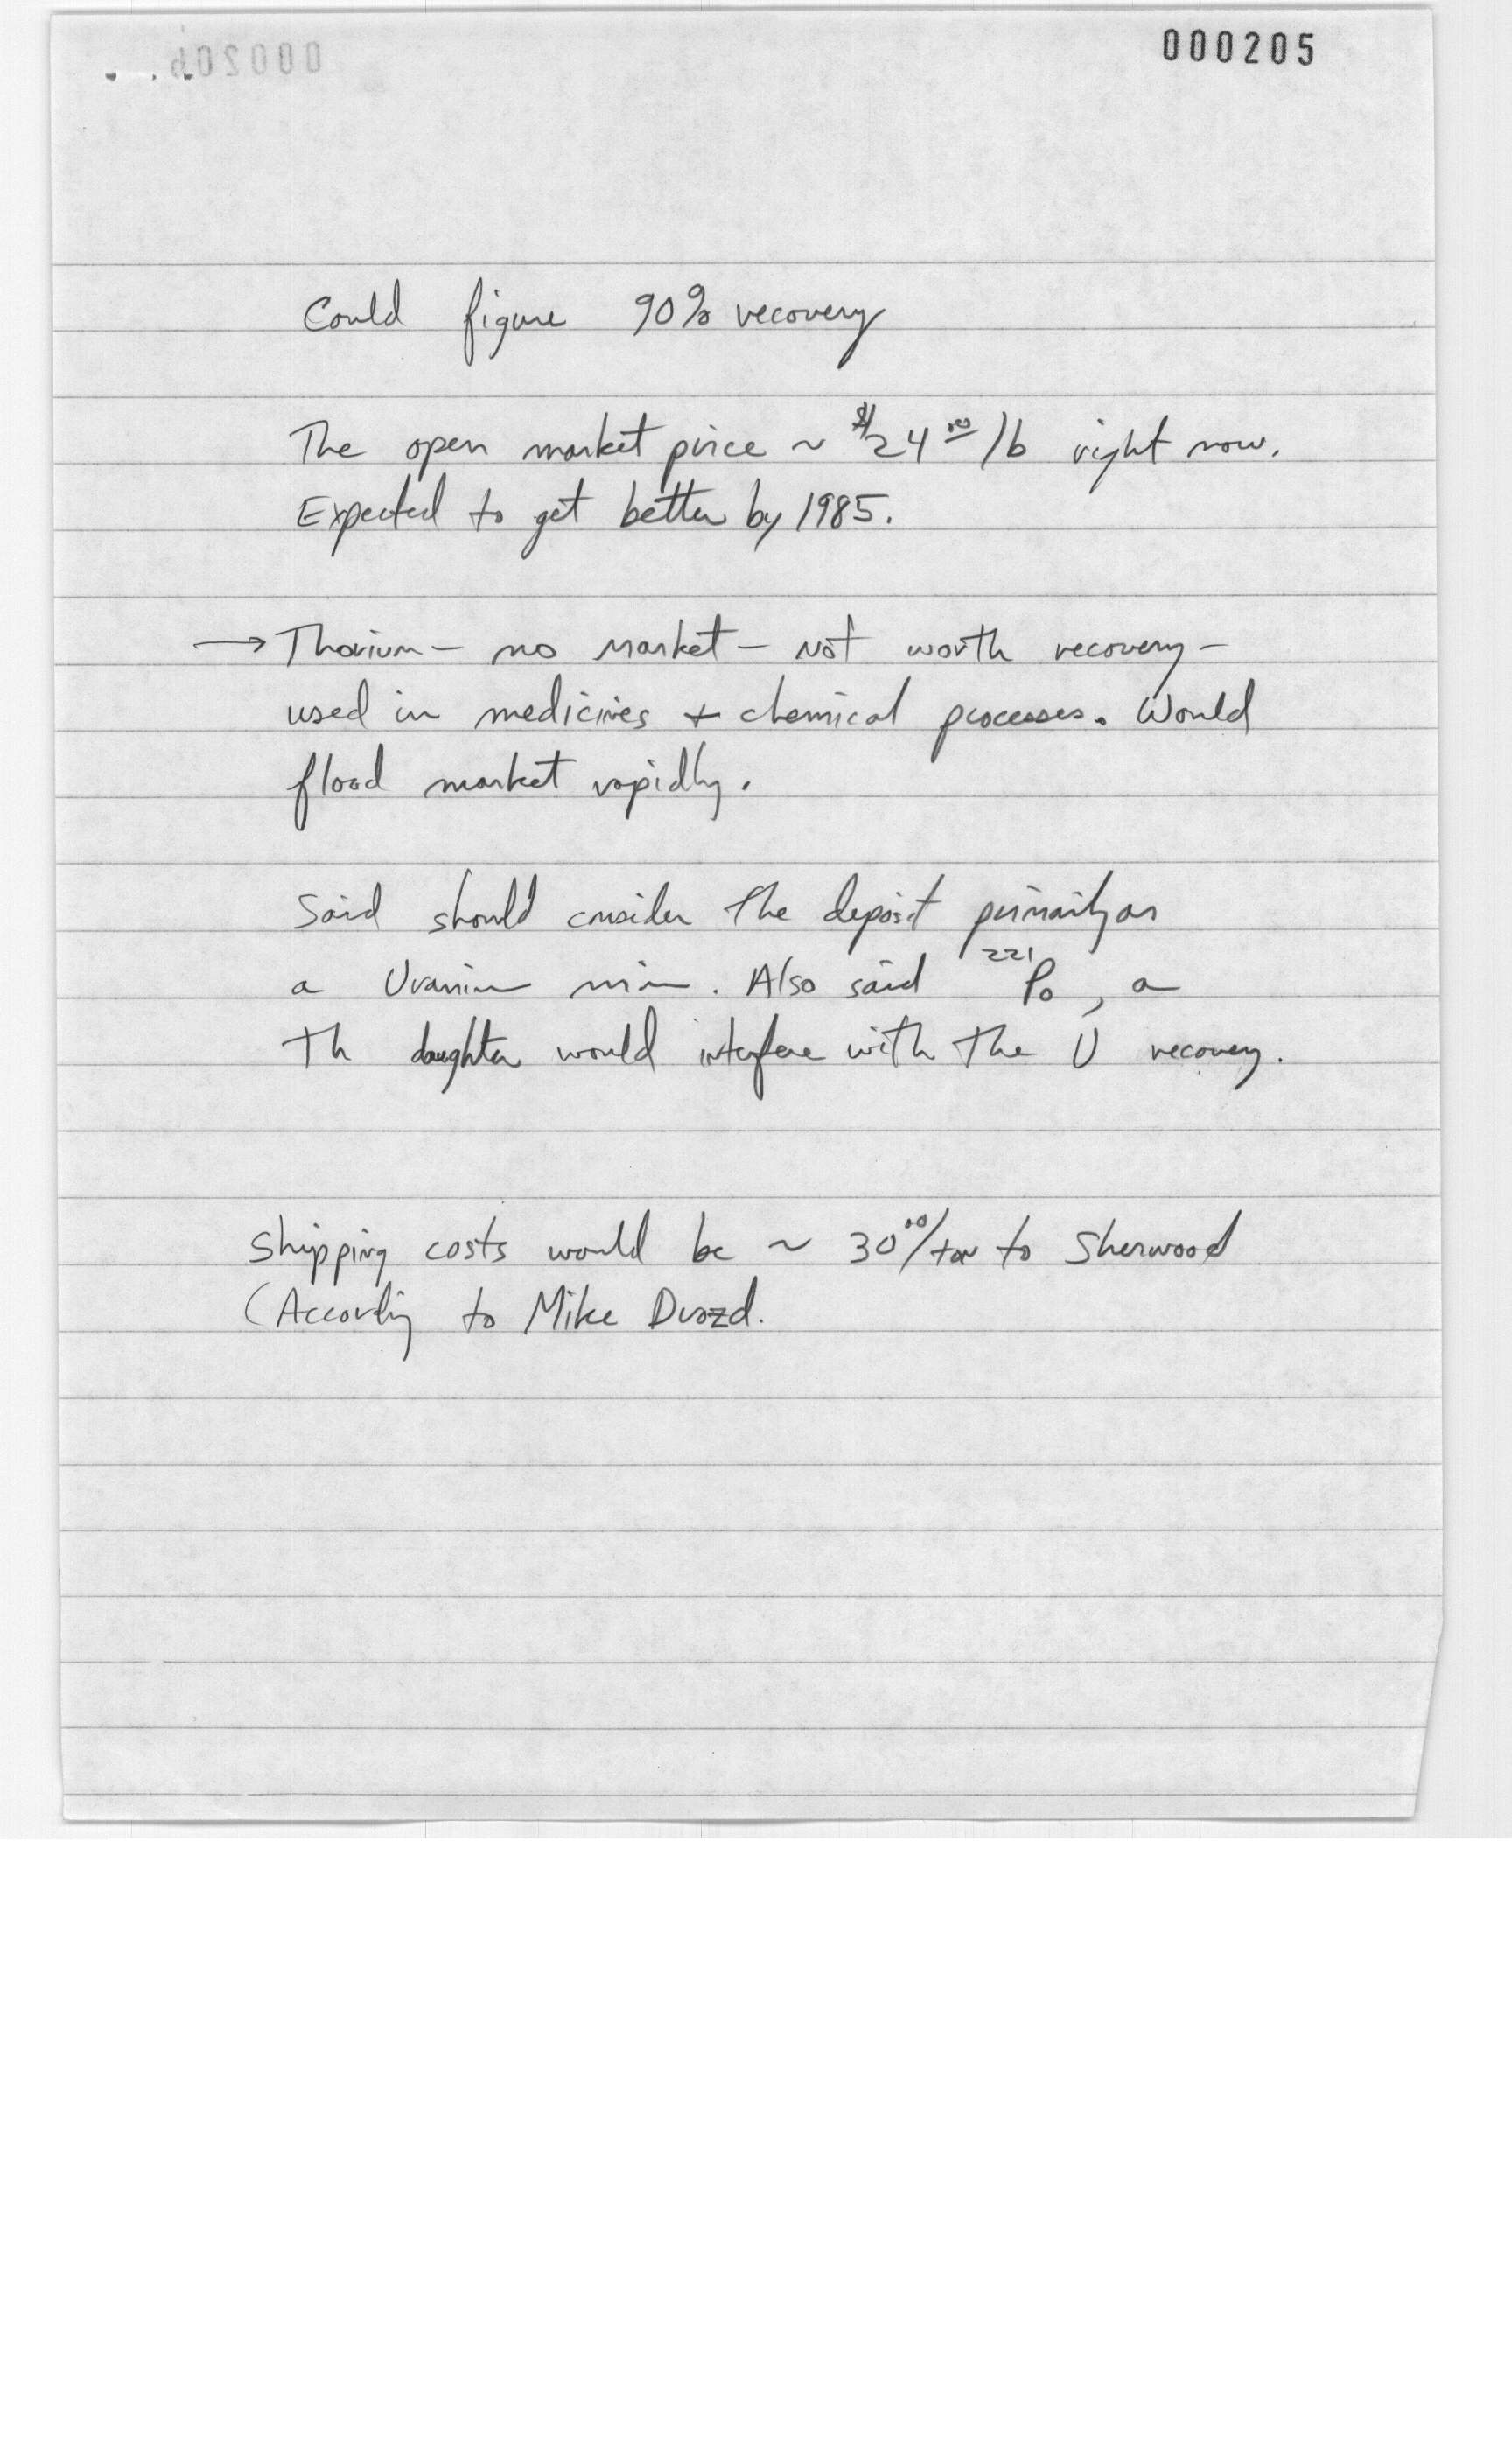 000205
Could figure 90% recovery
The open market price ~ $24.00/lb right now.
Expected to get better by 1985.
→ Thorium - no market - not worth recovery -
used in medicines + chemical processes. Would
flood market rapidly.
Said should consider the deposit primarily as
a Uranium min. Also said 221Po, a
Th daughter would interfere with the U recovery.
Shipping costs would be ~ 30.00/ton to Sherwood
(According to Mike Drozd.